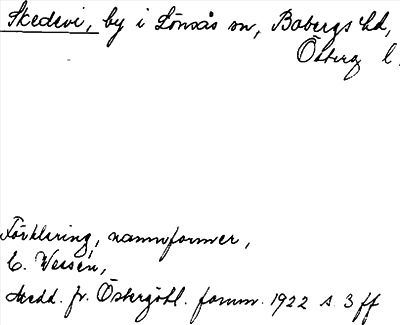 Skedevi, by i Lönsås sn, Bobergs hd,
Österg l.
Förklaring, namnformer,
E. Wessén,
Medd. fr. Östergötl. fornm. 1922 s. 3 ff